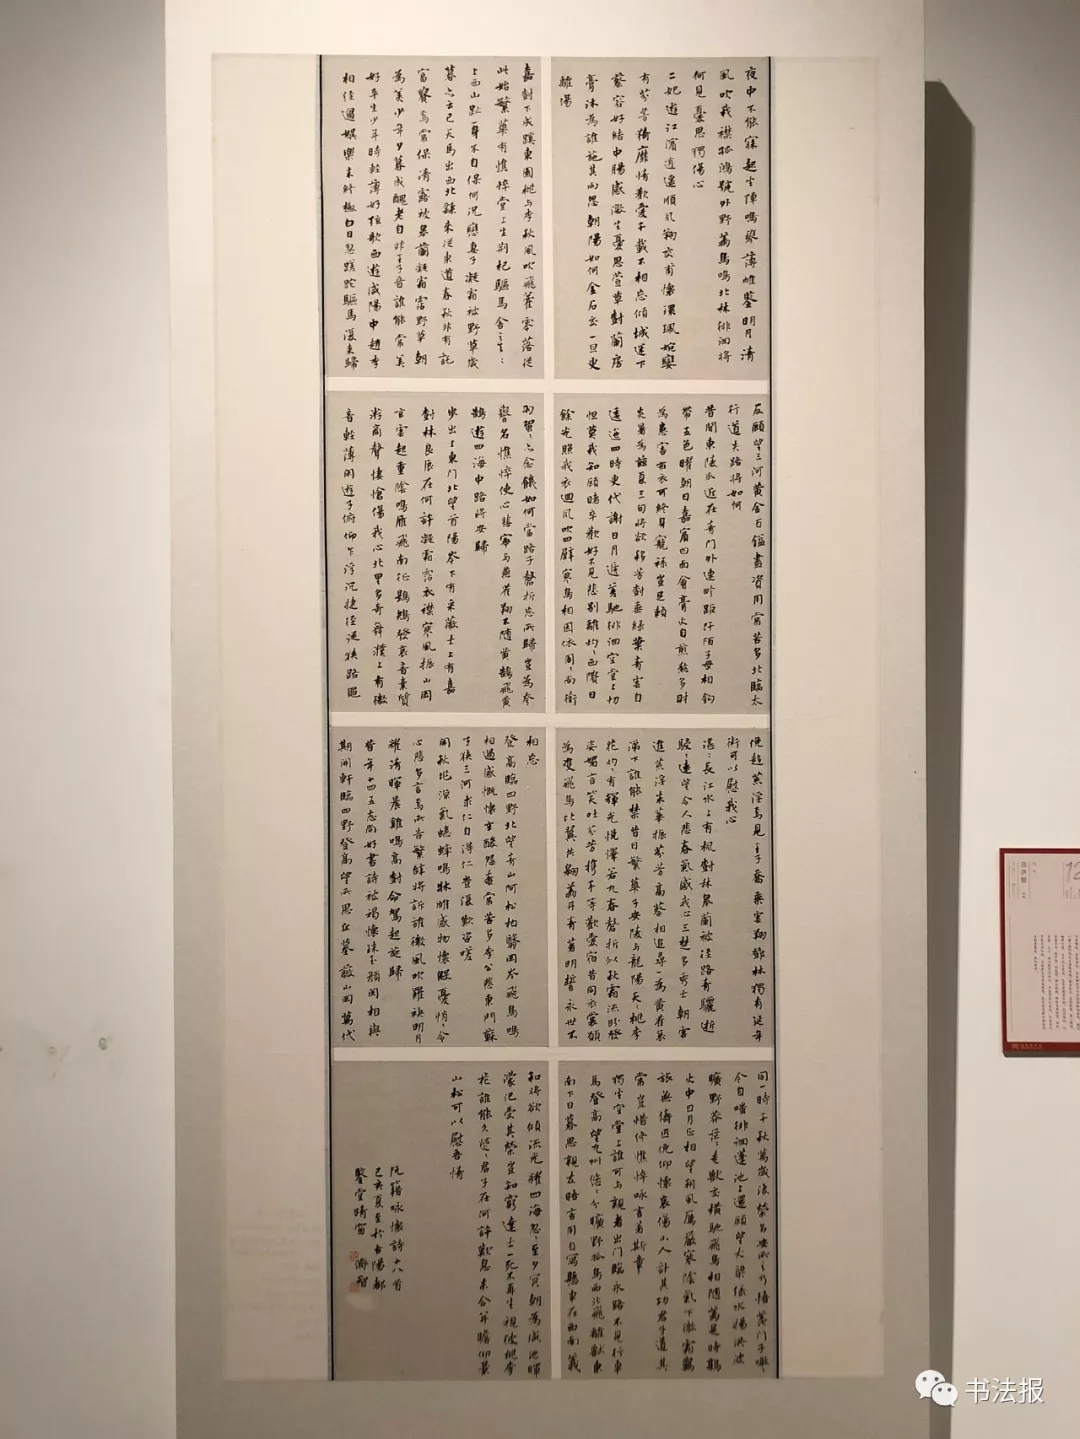 夜中不能寐起坐彈鳴琴薄帷鑒明月清
風吹我襟孤鴻號外野翔鳥鳴北林徘徊將
何見憂思獨傷心
二妃遊江濱逍遙順風翔交甫懷環珮婉孌
有芬芳猗靡情歡愛千載不相忘傾城迷下
蔡容好結中腸感激生憂思萱草樹蘭房
膏沐為誰施其雨怨朝陽如何金石交一旦更
離傷
嘉樹下成蹊東園桃與李秋風吹飛藿零落從
此始繁華有憔悴堂上生荊杞驅馬舍之去〻
上西山趾一身不自保何況戀妻子凝霜被野草歲
暮亦云已天馬出西北繇來從東道春秋非有訖
富貴焉常保清露被皋蘭凝霜霑野草朝
為美少年夕暮成醜老自非王子晉誰能常美
好平生少年時輕薄好絃歌西遊咸陽中趙李
相經過娛樂未終極白日忽蹉跎驅馬復來歸
反顧望三河黃金百鎰盡資用常苦多北臨太
行道失路將如何
昔聞東陵瓜近在青門外連畛距阡陌子母相鉤
帶五色曜朝日嘉賓四面會膏火自煎熬多財
為患害布衣可終身寵祿豈足賴
炎暑為茲夏三旬將欲移芳樹垂綠葉青雲自
逶迤四時更代謝日月遞差馳徘徊空堂上忉
怛莫我知願睹卒歡好不見悲別離灼〻西隤日
餘光照我衣迴風吹四壁寒鳥相因依周〻尚銜
羽蛩〻亦念饑如何當路子磬折忘所歸豈為夸
譽名憔悴使心悲寧與燕雀翔不隨黃鵠飛黃
鵠遊四海中路將安歸
步出上東門北望首陽岑下有采薇士上有嘉
樹林良辰在何許凝霜霑衣襟寒風振山岡
玄雲起重陰鳴雁飛南征鶗鴂發哀音素質
游商聲悽愴傷我心北里多奇舞濮上有微
音輕薄閒遊子俯仰乍浮沉捷徑從狹路僶
俛趨荒淫焉見王子喬乘雲翔鄧林獨有延年
術可以慰我心
湛〻長江水上有楓樹林皋蘭被徑路青驪逝
駸〻遠望令人悲春氣感我心三楚多秀士朝雲
進荒淫朱華振芬芳高蔡相追尋一為黃雀哀
涕下誰能禁昔日繁華子安陵與龍陽夭〻桃李
花灼〻有輝光悅懌若九春磬折似秋霜流盼發
姿媚言笑吐芬芳攜手等歡愛宿昔同衣裳願
為雙飛鳥比翼共翱翔丹青著明誓永世不
相忘
登高臨四野北望青山阿松柏翳岡岑飛鳥鳴
相過感慨懷辛酸怨毒常苦多李公悲東門蘇
子狹三河求仁自得仁豈復歎咨嗟
開秋兆涼氣蟋蟀鳴牀帷感物懷殷憂悄〻令
心悲多言焉所告繁辭將訴誰微風吹羅袂明月
耀清暉晨雞鳴高樹命駕起旋歸
昔年十四五志尚好書詩被褐懷珠玉顏閔相與
期開軒臨四野登高望所思丘墓蔽山岡萬代
同一時千秋萬歲後榮名安所之乃悟羨門子噭〻
今自嗤徘徊蓬池上還顧望大梁綠水揚洪波
曠野莽茫〻走獸交橫馳飛鳥相隨翔是時鶉
火中日月正相望朔風厲嚴寒陰氣下微霜羈
旅無儔匹俛仰懷哀傷小人計其功君子道其
常豈惜終憔悴詠言著斯章
獨坐空堂上誰可與親者出門臨永路不見行車
馬登高望九州悠〻分曠野孤鳥西北飛離獸東
南下日暮思親友晤言用自寫懸車在西南羲
和將欲傾流光耀四海忽〻至夕冥朝為咸池暉
濛汜受其榮豈知窮達士一死不再生視彼桃李
花誰能久熒〻君子在何許歎息未合并瞻仰景
山松可以慰吾情
阮籍咏懷詩十八首
己亥夏至於古陽都
鑒堂晴窗
书法报